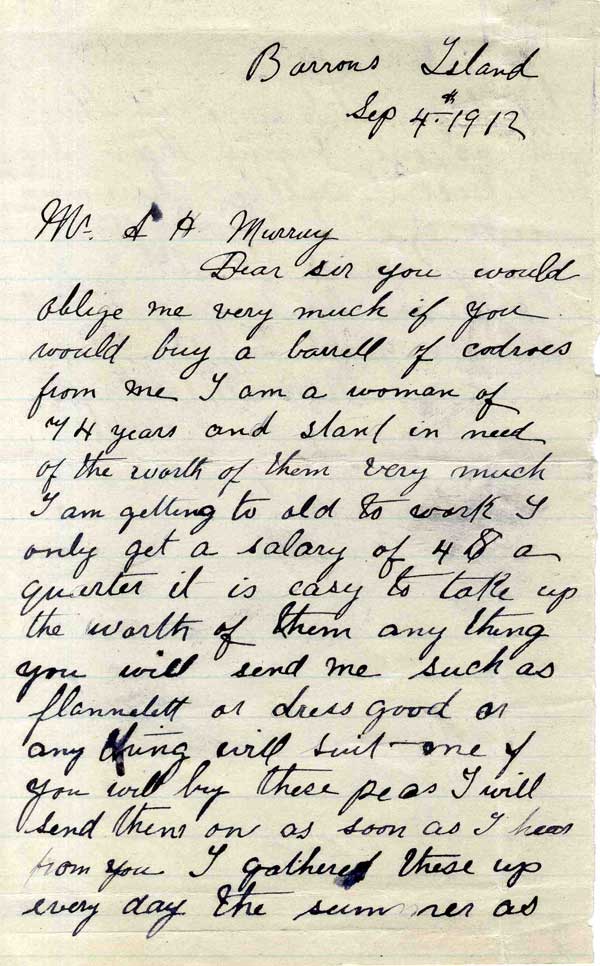 Barrons Island
Sep 4th 1912
Mr. S H Murray
Dear sir you would
oblige me very much if you
would buy a barrell of codroes
from me I am a woman of
74 years and stant in need
of the worth of them very much
I am getting to old to work I
only get a salary of 4 $ a
quarter it is easy to take up
the worth of them any thing
you will send me such as
flannelett or dress good or
any thing will suit me if
you will by these peas I will
send them on as soon as I hear
from you I gathered these up
every day the summer as